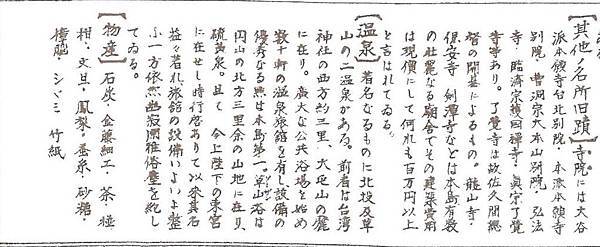 【其他ノ名所旧蹟】寺院には大谷
派本願寺台北別院・本派本願寺
別院・曹洞宗大本山別院・弘法
寺・臨済宗鎮南禅寺・真宗了覚
寺等あり。了覺寺は故佐久間総
督の開基によるもの。龍山寺・
保安寺・剣潭寺などは本島有数
の壮麗なる廟舎でその建築費用
は現價にして何れも百万円以上
と言はれてゐる。
【温泉】著名なるものに北投及草
山の二温泉がある。前者は台湾
神社の西方約三里、大屯山の麓
に在り。廣大な公共浴場を始め
数十軒の温泉旅館を有し設備の
優秀なる点は本島第一。草山浴は
円山の北方三里余の山地に在り、
硫黄泉。且て 今上陛下の東宮
に在せし時行啓ありて以来其名
益々著れ旅館の設備いよいよ整
ふ一方依然幽寂閑雅俗塵を絶し
てゐる。
【物産】石炭・金藤細工・茶・椪
柑・文旦・鳳梨・・砂糖・
樟脳・シジミ・竹紙